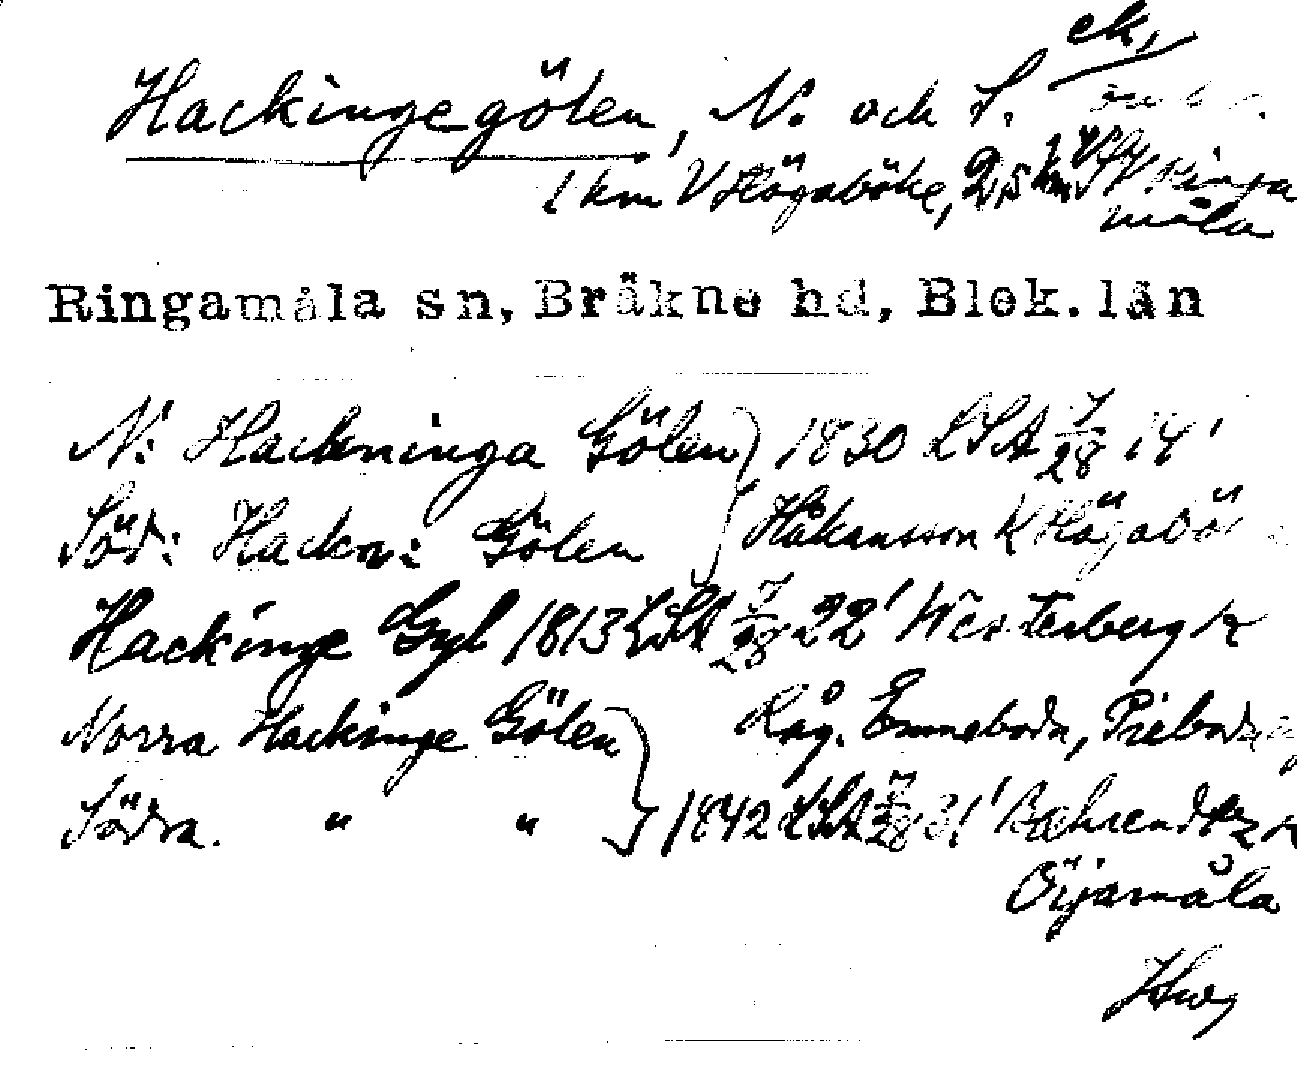 ek.
Hackingegölen, N. och S.
1 km V Högaböke, 2,5 km V Ringa
måla
Ringamåla sn, Bräkne hd, Blek. län
N: Hackninga Gölen } 1830 LSA 7/28 14'
Söd: Hackn: Gölen } Håkansson K Högabö
Hackinge Gyl 1813 LSA 7/28 22' Westerberg K
Norra Hackinge Gölen } Råg. Emneboda, Pieboda
Södra. " " } 1842 LSA 7/28 31' Bæhrendtz K
Öijamåla